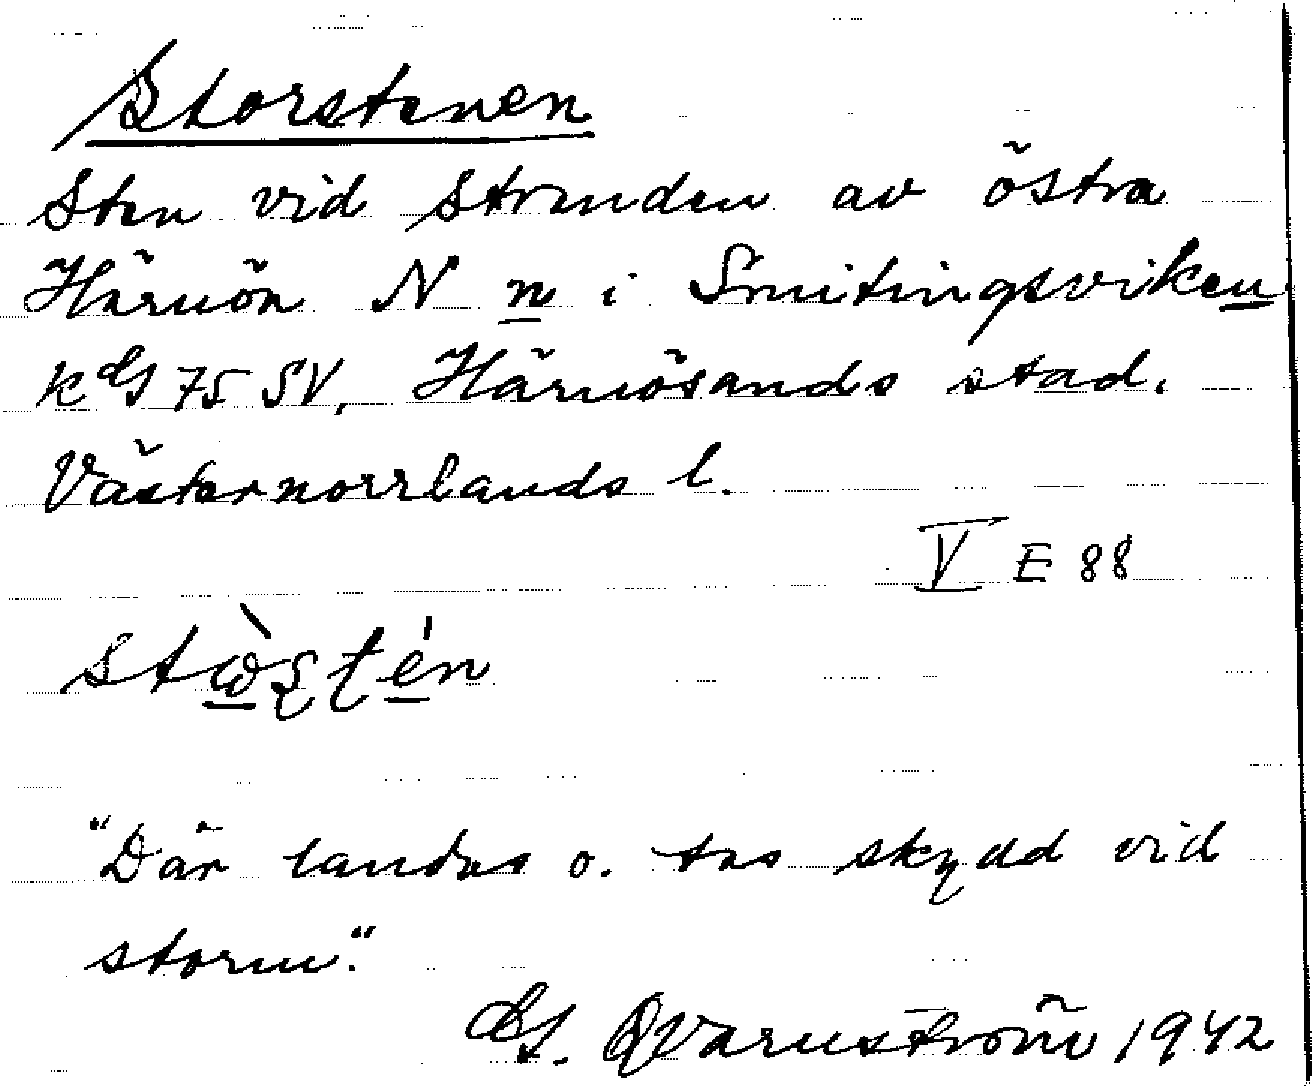 Storstenen
Sten vid stranden av östra
Härnön N n i Smitingsviken
k G 75 SV, Härnösands stad.
Västernorrlands l.
V E 88
"Där landas o. tas skydd vid
storm."
G. Qvarnström 1942